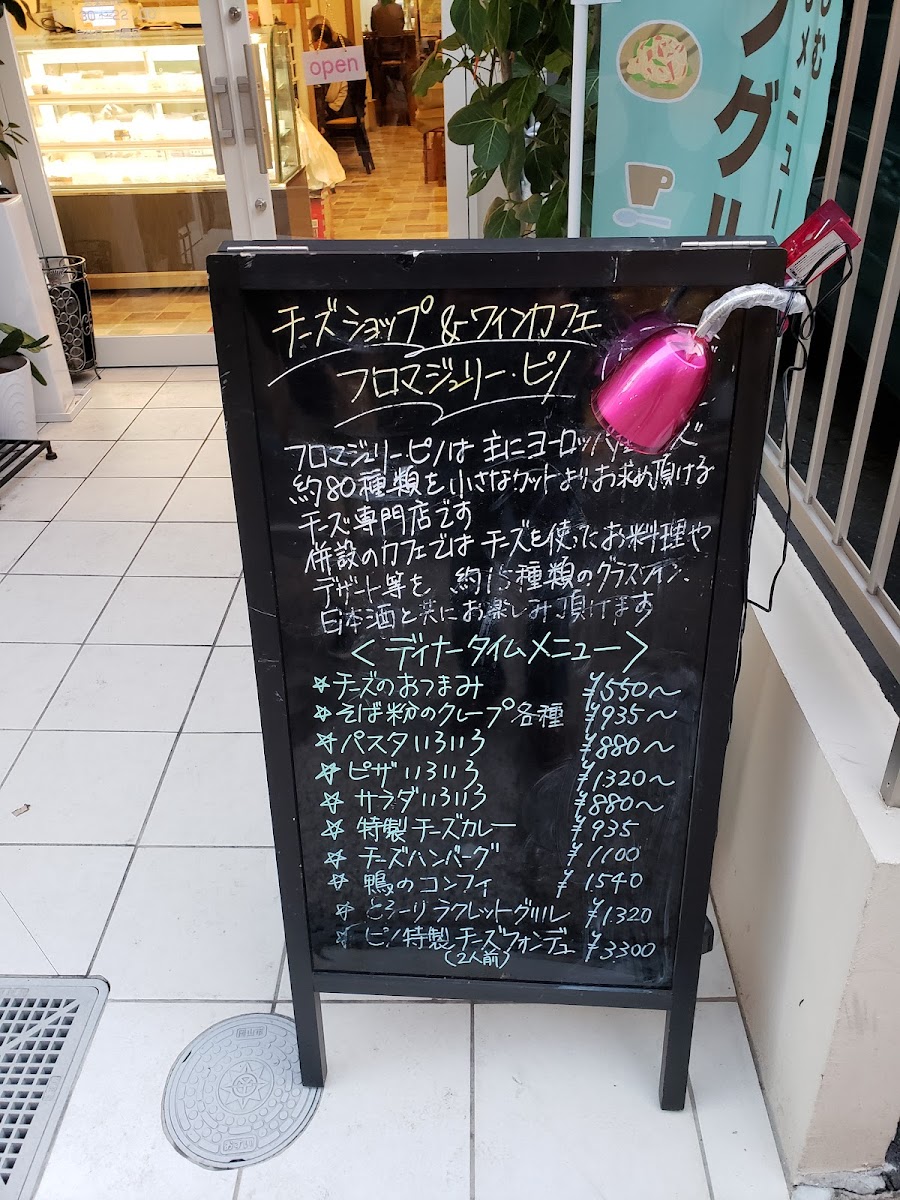 open
チーズショップ &ワインカフェ
フロマジュリー・ピノ
フロマジュリー・ピノは 主にヨーロッパ
約80種類を小さなカットよりお求め頂ける
チーズ専門店です
併設のカフェでは チーズを使ったお料理や
デザート等を 約15種類のグラスワイン、
日本酒と共にお楽しみ頂けます
<ディナータイムメニュー>
☆チーズのおつまみ ¥550~
☆そば粉のクレープ各種 ¥935~
☆パスタいろいろ ¥880~
☆ピザいろいろ ¥1320~
☆サラダいろいろ ¥880~
☆特製チーズカレー ¥935
☆チーズハンバーグ ¥1100
☆鴨のコンフィ ¥1540
☆とろーりラクレットグリル ¥1320
☆ピノ特製チーズフォンデュ ¥3300
(2人前)